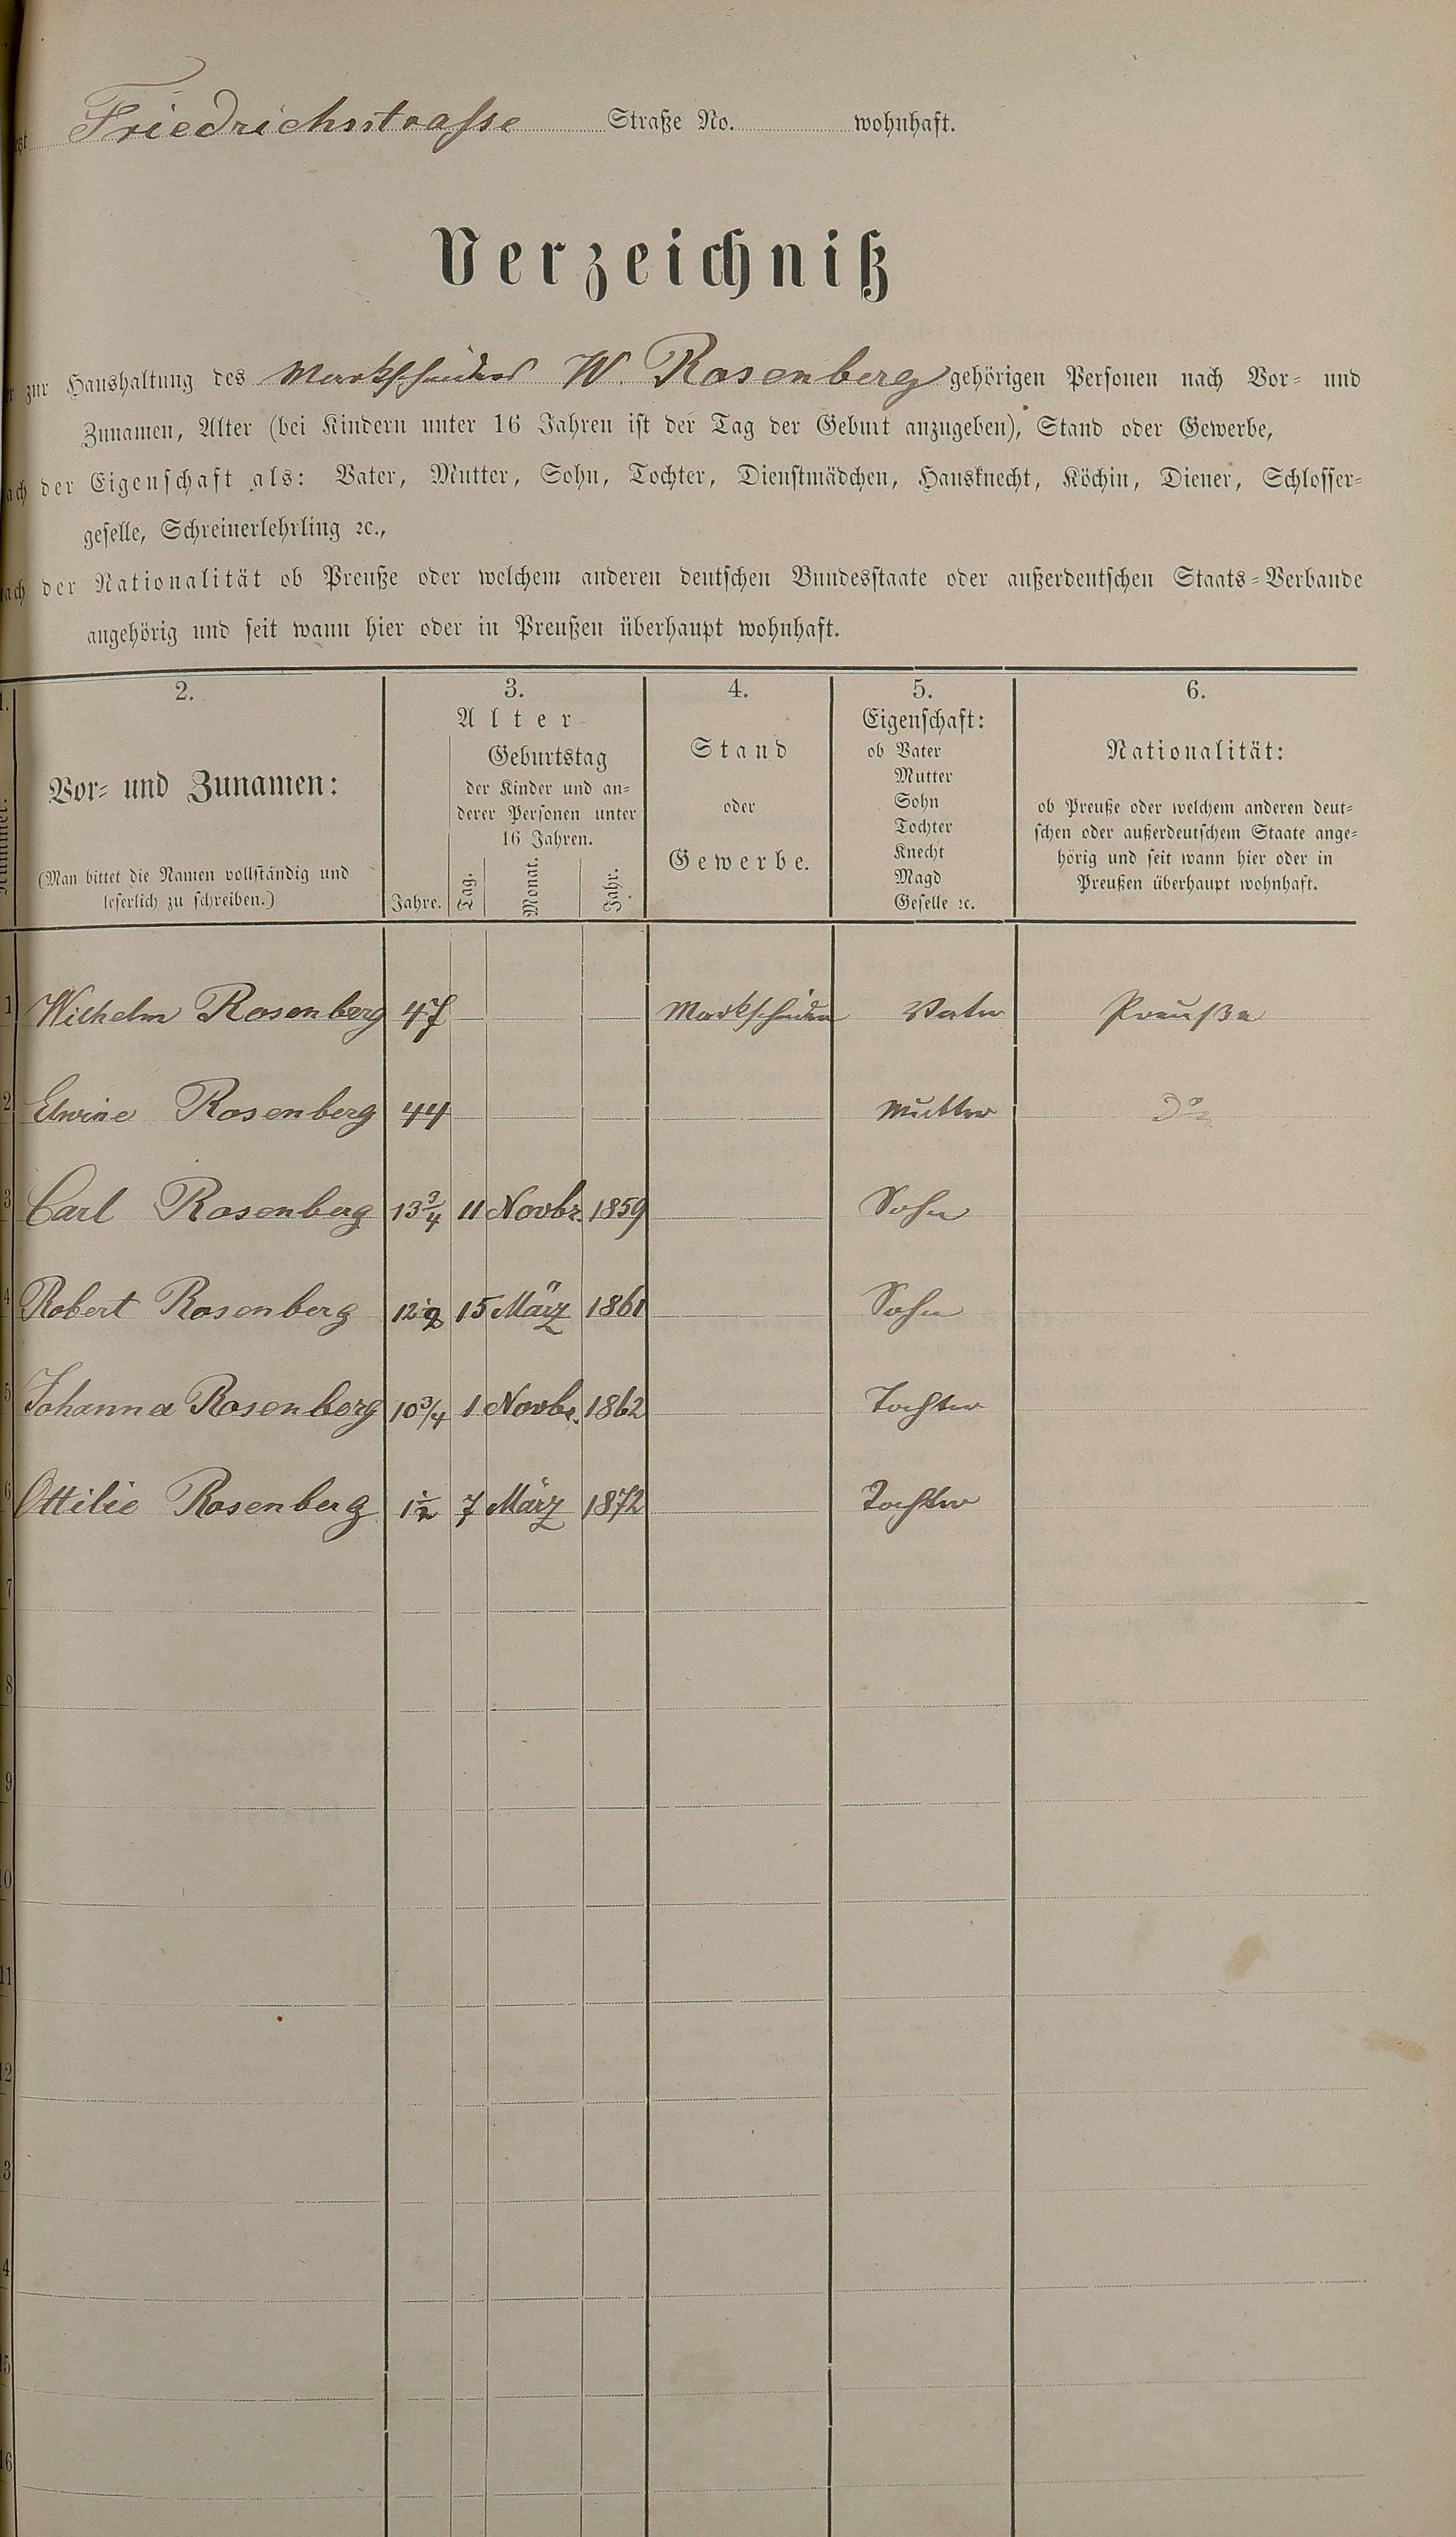 Friedrichsstrasse Straße No. wohnhaft.
Verzeichniß
zur Haushaltung des Markscheider W. Rosenberg gehörigen Personen nach Vor- und
Zunamen, Alter (bei Kindern unter 16 Jahren ist der Tag der Geburt anzugeben), Stand oder Gewerbe,
nach der Eigenschaft als: Vater, Mutter, Sohn, Tochter, Dienstmädchen, Hausknecht, Köchin, Diener, Schlosser-
geselle, Schreinerlehrling ꝛc.,
nach der Nationalität ob Preuße oder welchem anderen deutschen Bundesstaate oder außerdeutschen Staats-Verbande
angehörig und seit wann hier oder in Preußen überhaupt wohnhaft.
1. 2. 3. 4. 5. 6.
Nummer.
Vor- und Zunamen:
(Man bittet die Namen vollständig und
leserlich zu schreiben.)
Alter
Jahre.
Geburtstag
der Kinder und an-
derer Personen unter
16 Jahren.
Tag. Monat. Jahr.
Stand
oder
Gewerbe.
Eigenschaft:
ob Vater
Mutter
Sohn
Tochter
Knecht
Magd
Geselle ꝛc.
Nationalität:
ob Preuße oder welchem anderen deut-
schen oder außerdeutschem Staate ange-
hörig und seit wann hier oder in
Preußen überhaupt wohnhaft.
1 Wilhelm Rosenberg 47 Markscheider Vater Preuße
2 Elwine Rosenberg 44 Mutter Do
3 Carl Rosenberg 13 3/4 11 Novbr. 1859 Sohn
4 Robert Rosenberg 12 1/2 15 März 1861 Sohn
5 Johanna Rosenberg 10 3/4 1 Novbr. 1862 Tochter
6 Ottilie Rosenberg 1 1/2 7 März 1872 Tochter
7
8
9
10
11
12
3
4
15
16